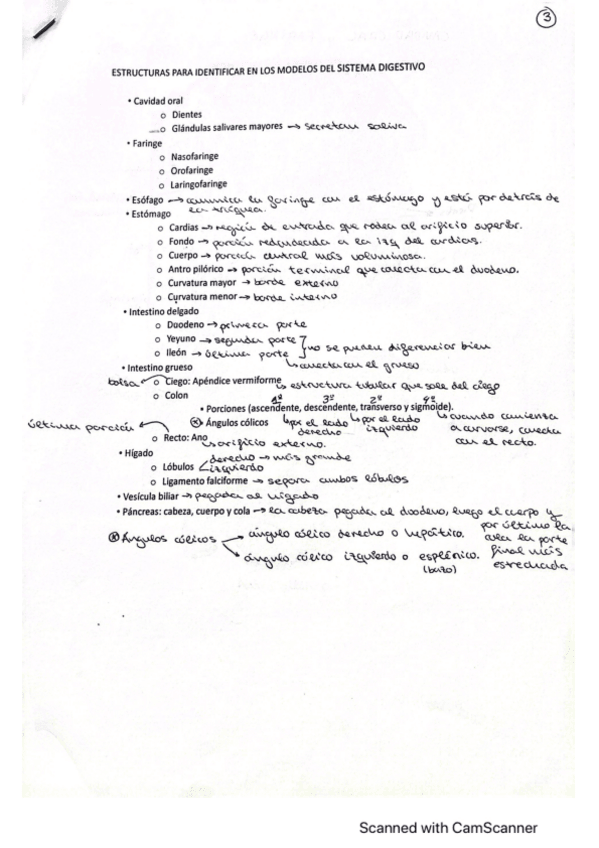 3
ESTRUCTURAS PARA IDENTIFICAR EN LOS MODELOS DEL SISTEMA DIGESTIVO
• Cavidad oral
o Dientes
o Glándulas salivares mayores → secretan saliva
• Faringe
o Nasofaringe
o Orofaringe
o Laringofaringe
• Esófago → comunica la faringe con el estómago y está por detrás de
la tráquea.
• Estómago
o Cardias → región de entrada que rodea al orificio superior.
o Fondo → porción redondeada a la izq del cardias.
o Cuerpo → porción central más voluminosa.
o Antro pilórico → porción terminal que conecta con el duodeno.
o Curvatura mayor → borde externo
o Curvatura menor → borde interno
• Intestino delgado
o Duodeno → primera parte
o Yeyuno → segunda parte
o Ileón → última parte } no se pueden diferenciar bien
• Intestino grueso
↳ conecta con el grueso
bolsa ← o Ciego: Apéndice vermiforme ↳ estructura tubular que sale del ciego
o Colon
1º 3º 2º 4º
• Porciones (ascendente, descendente, transverso y sigmoide).
última porción ← ⊗ Ángulos cólicos ↳ por el lado derecho ↳ por el lado izquierdo ↳ cuando comienza a curvarse, conecta con el recto.
o Recto: Ano
↳ orificio externo.
• Hígado
o Lóbulos < derecho → más grande
izquierdo
o Ligamento falciforme → separa ambos lóbulos
• Vesícula biliar → pegada al hígado
• Páncreas: cabeza, cuerpo y cola → la cabeza pegada al duodeno, luego el cuerpo y
por último la
cola la parte
final más
estrechada
⊗ Ángulos cólicos → ángulo cólico derecho o hepático.
→ ángulo cólico izquierdo o esplénico.
(bazo)
Scanned with CamScanner